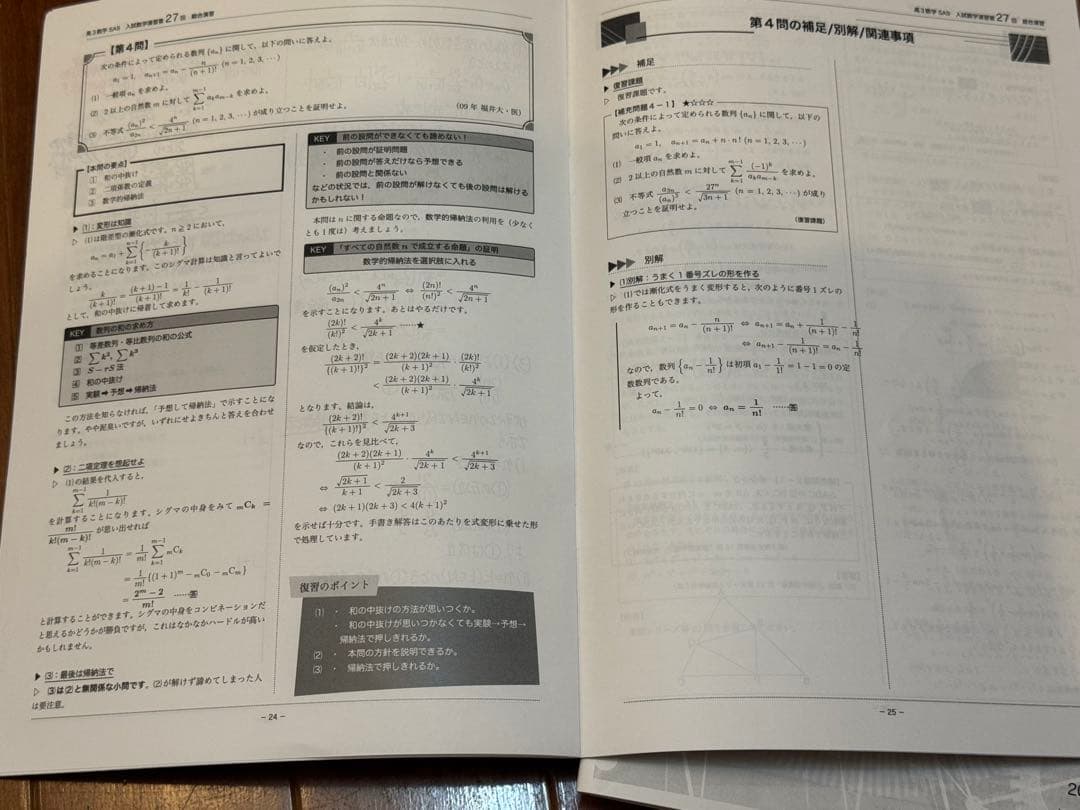 高3数学SAβ 入試数学演習教 27 回 総合演習
【第4問】
次の条件によって定められる数列 {aₙ} に関して,以下の問いに答えよ.
a₁ = 1, aₙ₊₁ = aₙ − n/(n+1)! (n = 1, 2, 3, ⋯)
(1) 一般項 aₙ を求めよ.
(2) 2以上の自然数 m に対して ∑_{k=1}^{m−1} aₖaₘ₋ₖ を求めよ.
(3) 不等式 (aₙ)²/a₂ₙ < 4ⁿ/√(2n+1) (n = 1, 2, 3, ⋯) が成り立つことを証明せよ.
(09年 福井大・医)
【本問の要点】
① 和の中抜け
② 二項係数の定義
③ 数学的帰納法
▶ (1):変形は知識
▷ (1)は階差型の漸化式です.n ≧ 2 において,
aₙ = a₁ + ∑_{k=1}^{n−1} {−k/(k+1)!}
を求めることになります.このシグマ計算は知識と言ってよいで
しょう.
k/(k+1)! = ((k+1)−1)/(k+1)! = 1/k! − 1/(k+1)!
として,和の中抜けに帰着して求めます.
KEY 数列の和の求め方
① 等差数列・等比数列の和の公式
② ∑k², ∑k³
③ S − rS 法
④ 和の中抜け
⑤ 実験 ➡ 予想 ➡ 帰納法
この方法を知らなければ,「予想して帰納法」で示すことにな
ります.やや泥臭いですが,いずれにせよきちんと答えを合わせ
ましょう.
▶ (2):二項定理を想起せよ
▷ (1)の結果を代入すると,
∑_{k=1}^{m−1} 1/(k!(m−k)!)
を計算することになります.シグマの中身をみて ₘCₖ =
m!/(k!(m−k)!) が思い出せれば
∑_{k=1}^{m−1} 1/(k!(m−k)!) = (1/m!) ∑_{k=1}^{m−1} ₘCₖ
= (1/m!){(1+1)ᵐ − ₘC₀ − ₘCₘ}
= (2ᵐ − 2)/m! ⋯⋯答
と計算することができます.シグマの中身をコンビネーションだ
と思えるかどうかが勝負ですが,これはなかなかハードルが高い
かもしれません.
▶ (3):最後は帰納法で
▷ (3)は(2)と無関係な小問です.(2)が解けず諦めてしまった人
は要注意.
KEY 前の設問ができなくても諦めない!
・ 前の設問が証明問題
・ 前の設問が答えだけなら予想できる
・ 前の設問と関係ない
などの状況では,前の設問が解けなくても後の設問は解ける
かもしれない!
本問は n に関する命題なので,数学的帰納法の利用を(少なく
とも1度は)考えましょう.
KEY 「すべての自然数 n で成立する命題」の証明
数学的帰納法を選択肢に入れる
(aₙ)²/a₂ₙ < 4ⁿ/√(2n+1) ⇔ (2n)!/(n!)² < 4ⁿ/√(2n+1)
を示すことになります.あとはやるだけです.
(2k)!/(k!)² < 4ᵏ/√(2k+1) ⋯⋯★
を仮定したとき,
(2k+2)!/{(k+1)!}² = (2k+2)(2k+1)/(k+1)² · (2k)!/(k!)²
< (2k+2)(2k+1)/(k+1)² · 4ᵏ/√(2k+1)
となります.結論は,
(2k+2)!/{(k+1)!}² < 4ᵏ⁺¹/√(2k+3)
なので,これらを見比べて,
(2k+2)(2k+1)/(k+1)² · 4ᵏ/√(2k+1) < 4ᵏ⁺¹/√(2k+3)
⇔ √(2k+1)/(k+1) < 2/√(2k+3)
⇔ (2k+1)(2k+3) < 4(k+1)²
を示せば十分です.手書き解答はこのあたりを式変形に乗せた形
で処理しています.
復習のポイント
(1) ・ 和の中抜けの方法が思いつくか.
・ 和の中抜けが思いつかなくても実験→予想→
帰納法で押しきれるか.
(2) ・ 本問の方針を説明できるか.
(3) ・ 帰納法で押しきれるか.
− 24 −
高3数学SAβ 入試数学演習教 27 回 総合演習
第4問の補足/別解/関連事項
▶▶▶ 補足
▶ 復習課題
▷ 復習課題です.
【補充問題4−1】★☆☆☆
次の条件によって定められる数列 {aₙ} に関して,以下の
問いに答えよ.
a₁ = 1, aₙ₊₁ = aₙ + n · n! (n = 1, 2, 3, ⋯)
(1) 一般項 aₙ を求めよ.
(2) 2以上の自然数 m に対して ∑_{k=1}^{m−1} (−1)ᵏ/(aₖaₘ₋ₖ) を求めよ.
(3) 不等式 a₃ₙ/(aₙ)³ < 27ⁿ/√(3n+1) (n = 1, 2, 3, ⋯) が成り
立つことを証明せよ.
(復習課題)
▶▶▶ 別解
▶ (1)別解:うまく1番号ズレの形を作る
▷ (1)では漸化式をうまく変形すると,次のように番号1ズレの
形を作ることもできます.
aₙ₊₁ = aₙ − n/(n+1)! ⇔ aₙ₊₁ = aₙ + 1/(n+1)! − 1/n!
⇔ aₙ₊₁ − 1/(n+1)! = aₙ − 1/n!
なので,数列 {aₙ − 1/n!} は初項 a₁ − 1/1! = 1 − 1 = 0 の定
数数列である.
よって,
aₙ − 1/n! = 0 ⇔ aₙ = 1/n! ⋯⋯答
− 25 −